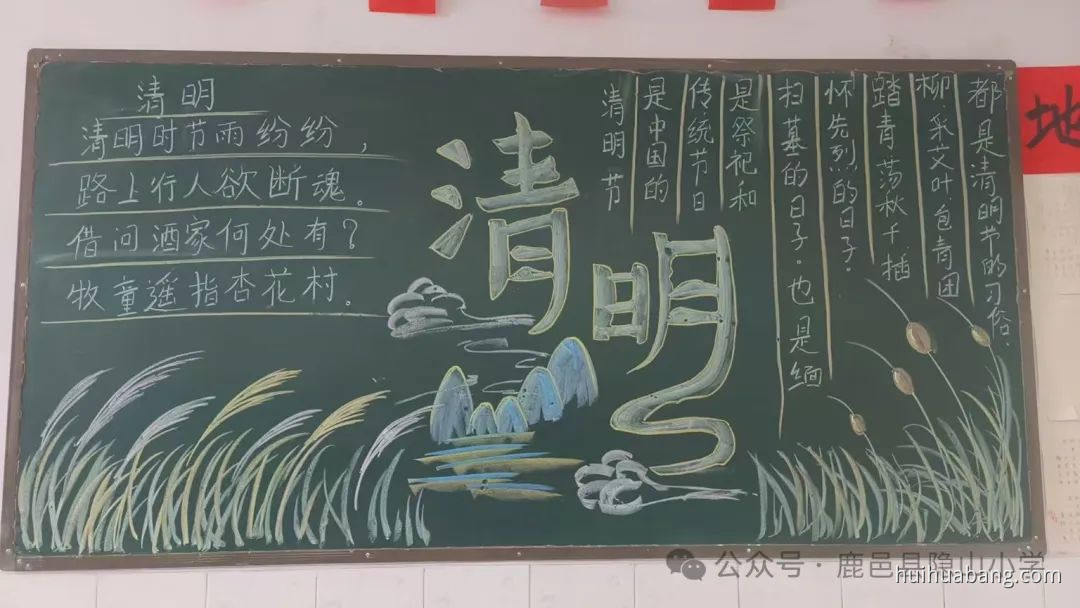 清明
清明时节雨纷纷，
路上行人欲断魂。
借问酒家何处有？
牧童遥指杏花村。
清明
清明节
是中国的
传统节日
是祭祀和
扫墓的日子。也是缅
怀先烈的日子.
踏青荡秋千插
柳采艾叶包青团
都是清明节的习俗.
地
公众号·鹿邑县隐山小学
huihuabang.com